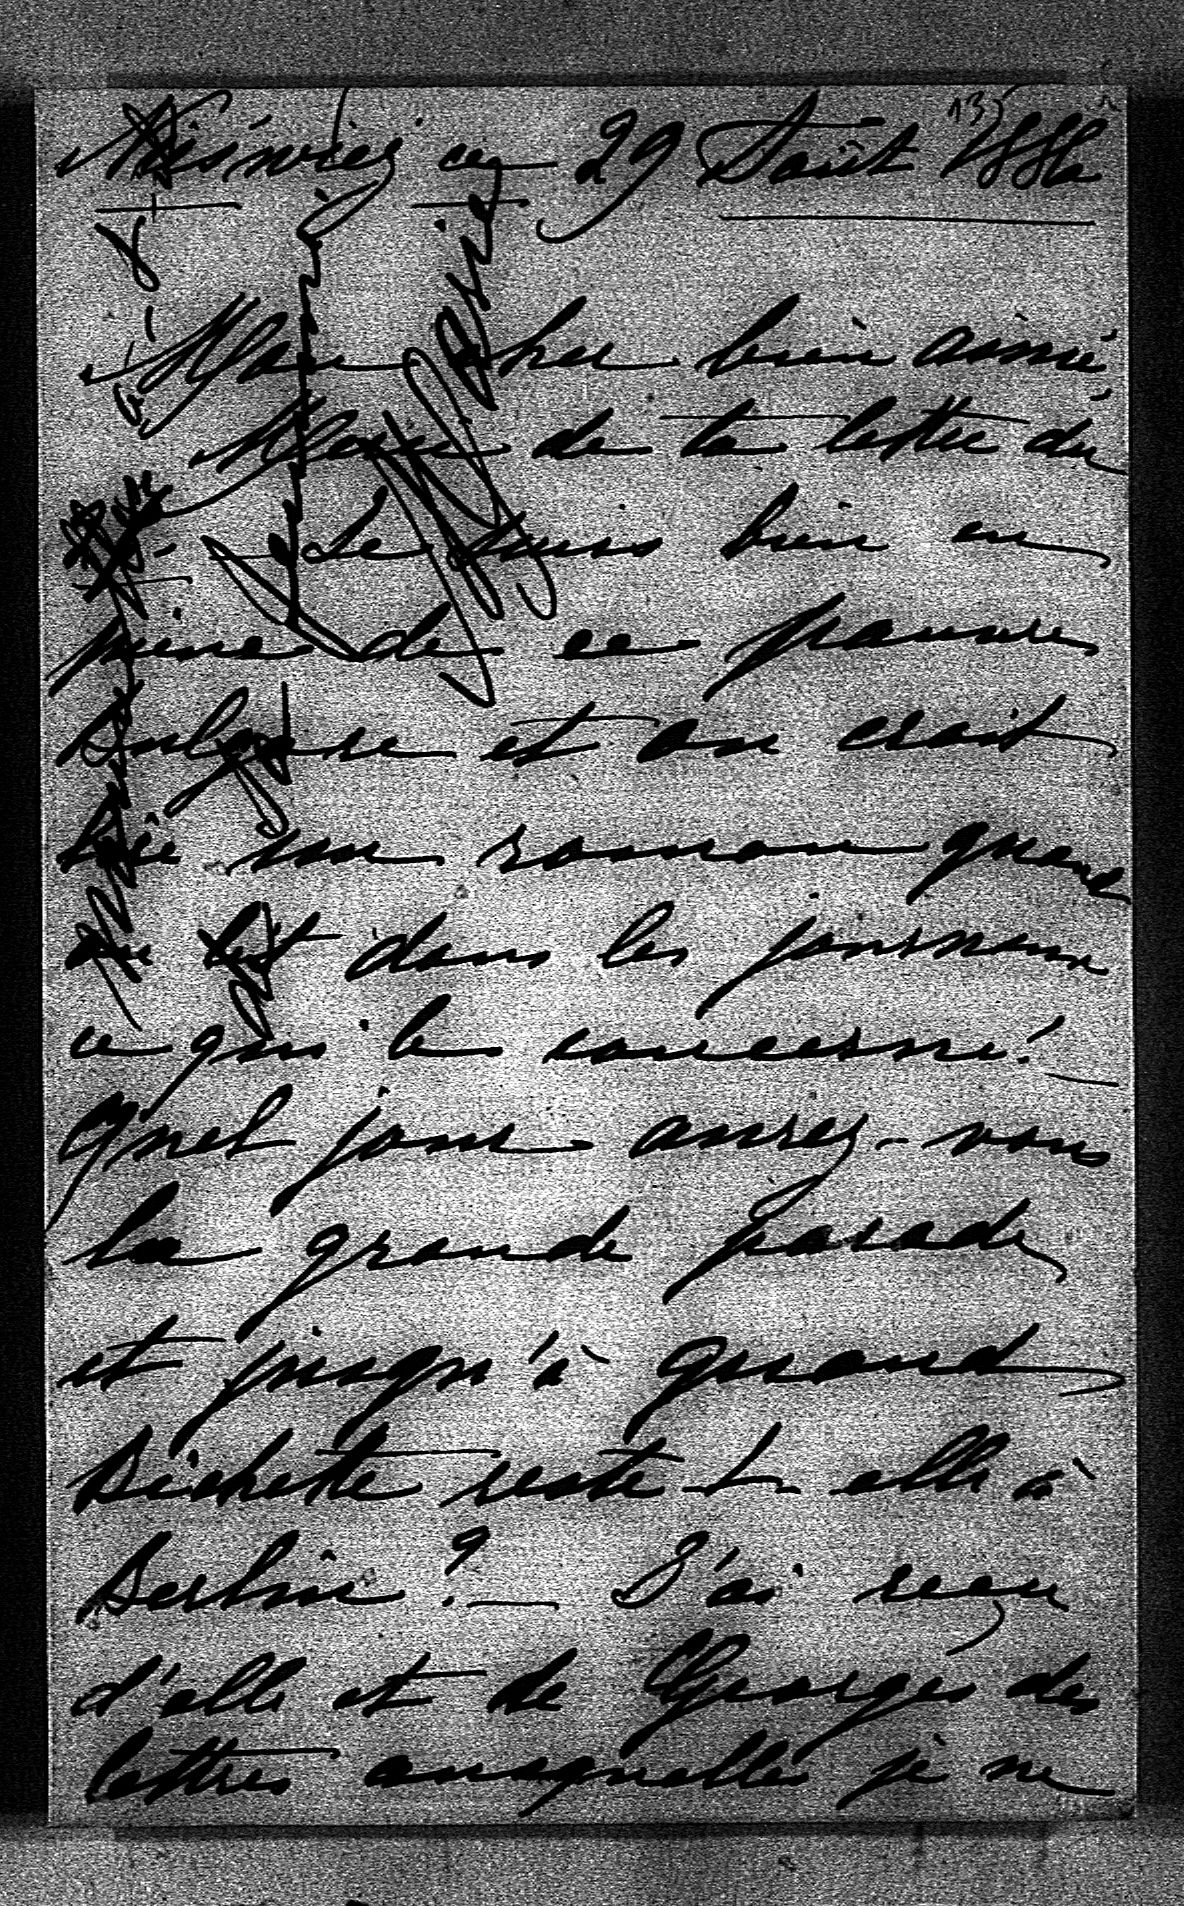 Nieśwież ce 29 Août 1886
135
Mon cher bien aimé
Merci de ta lettre du
Je suis bien en
peine de ce pauvre
Bulgare et on croit
lire un roman quand
on lit dans les journaux
ce qui le concerne!
Quel jour aurez-vous
la grande parade
et jusqu'à quand
Bichette reste-t-elle à
Berlin? J'ai reçu
d'elle et de Georges des
lettres auxquelles je ne